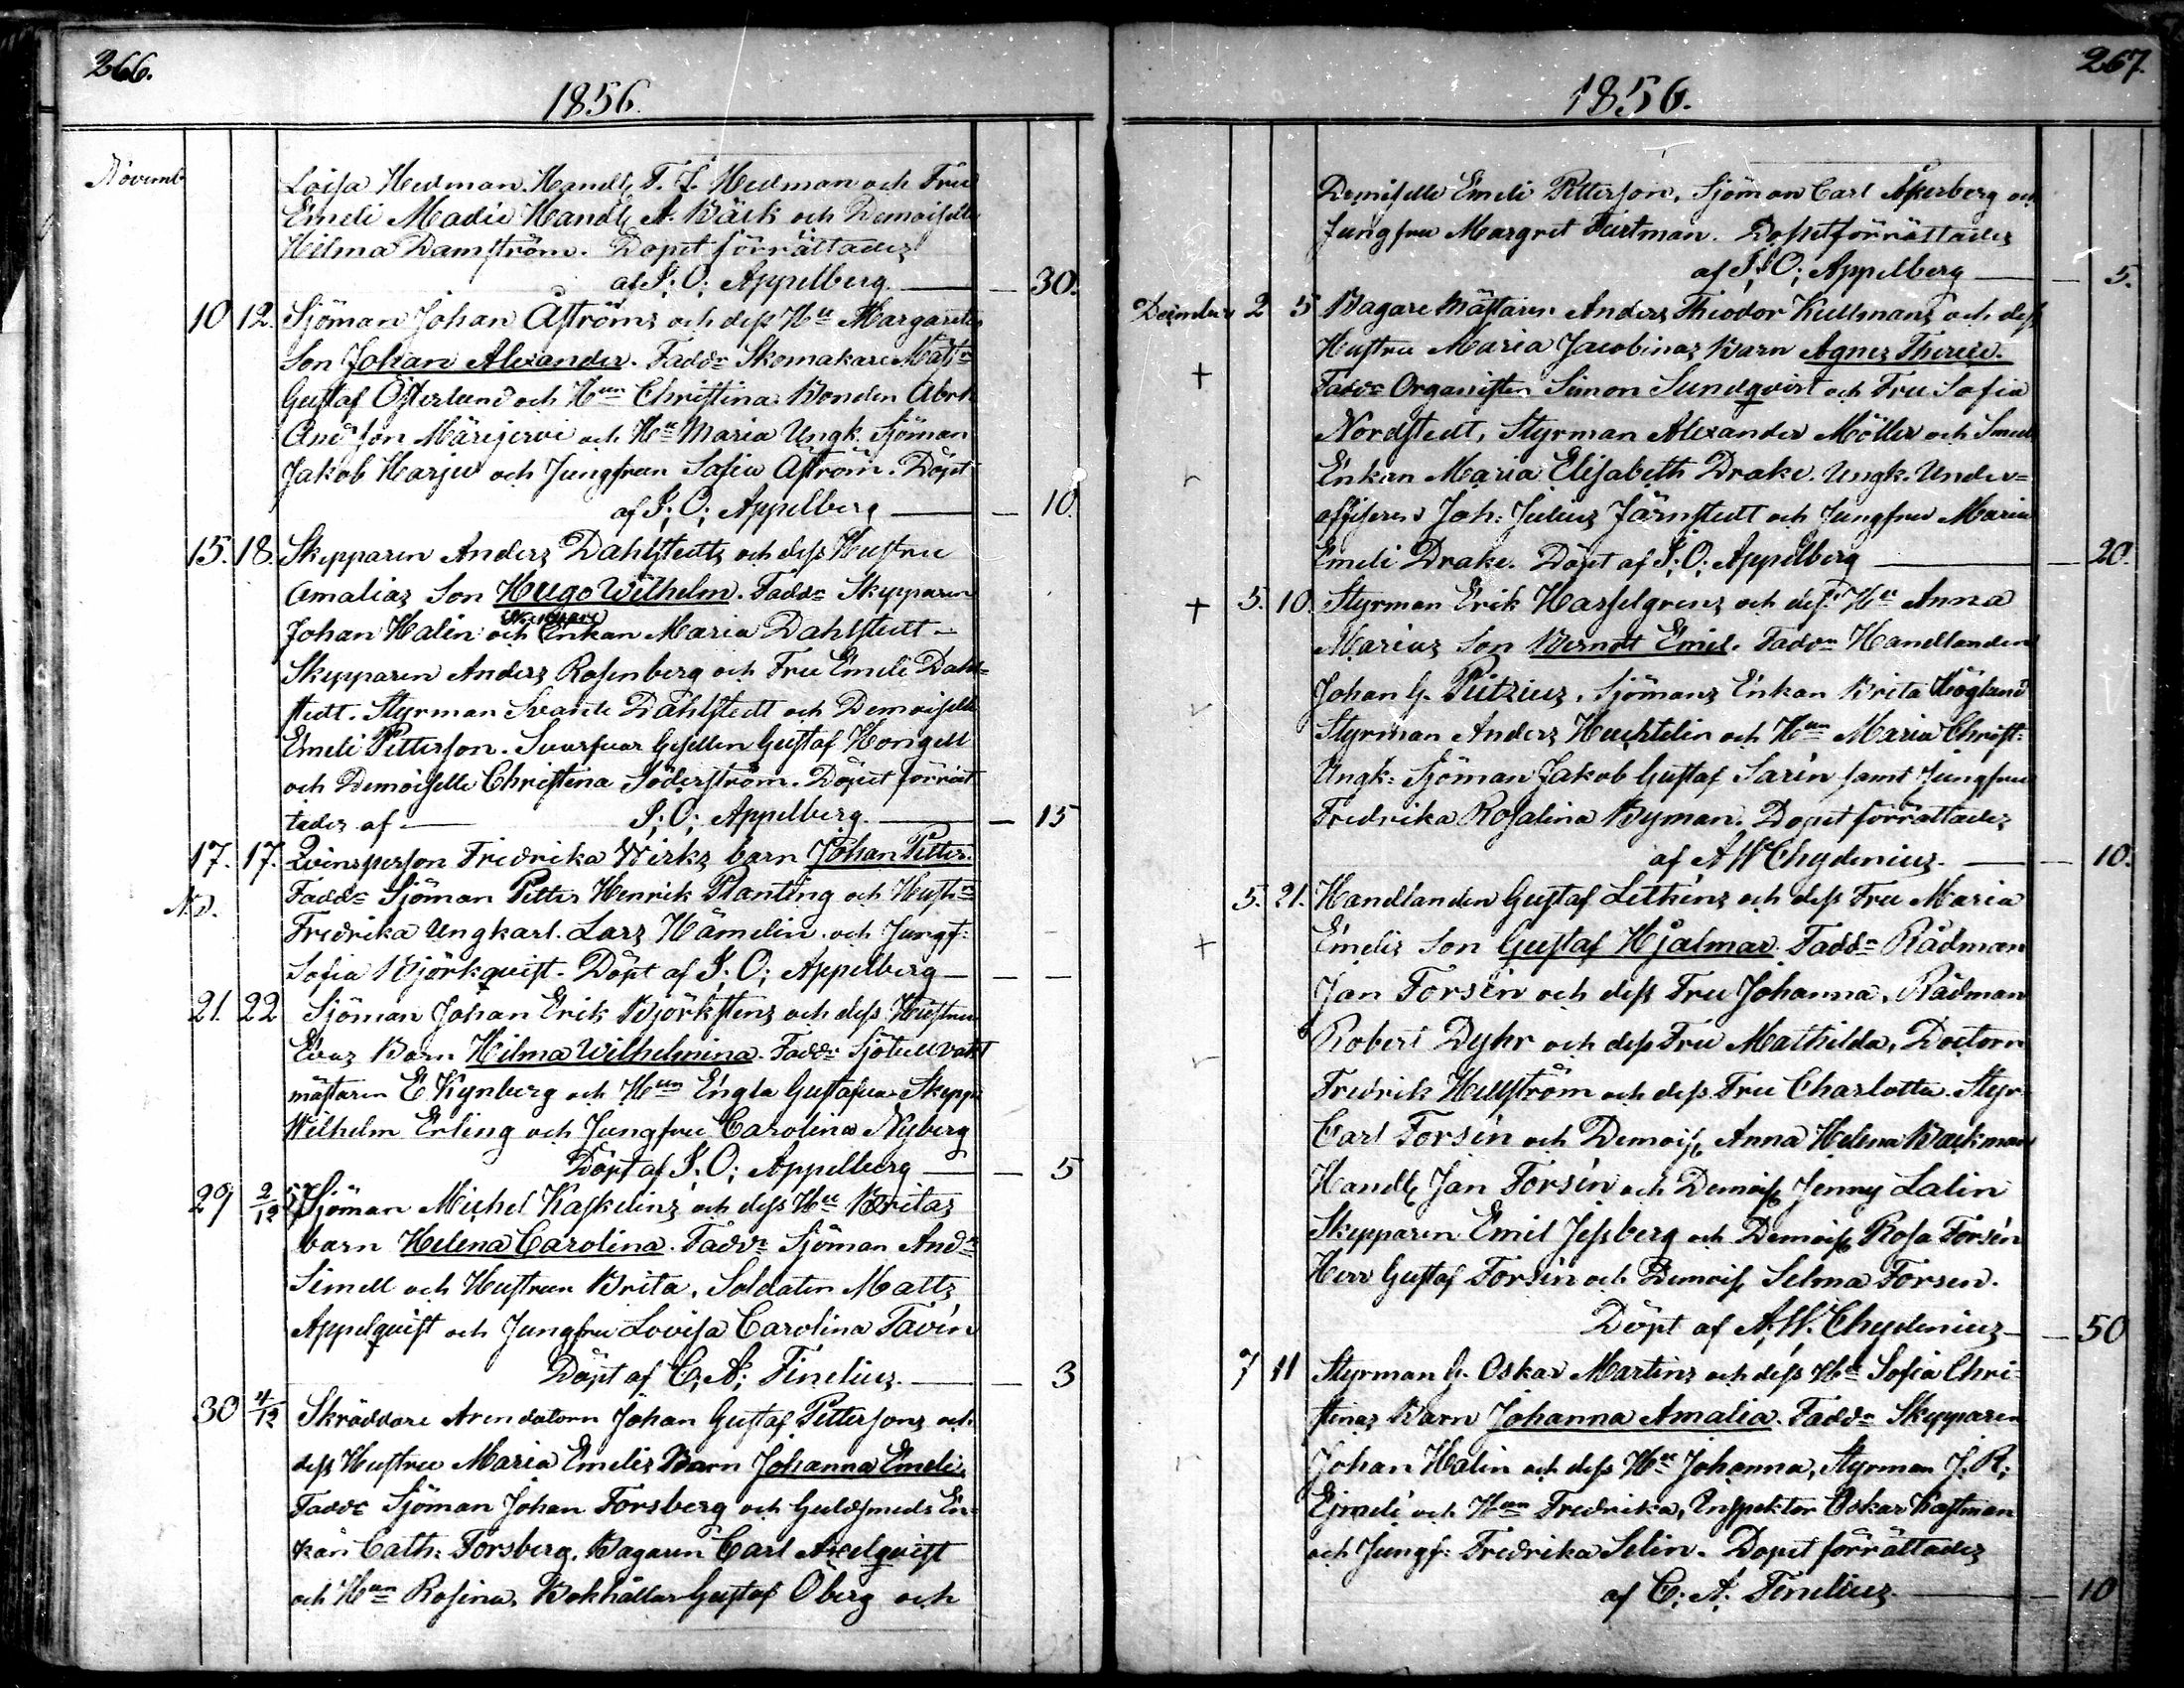 266.
1856.
Novemb
Lovisa Hedman. Handl. F. J. Hedman och Fru
Emeli Madie Handl. A. Bäck och Demoiselle
Hilma Damström. Dopet förrättades
af I; O; Appelberg. — 30.
10 12. Sjöman Johan Åströms och dess Hu Margaretes
Son Johan Alexander. Faddr Skomakare Mäst
Gustaf Österlund och Hun Christina Bonden Abrh
Andson Märijervi och Hu Maria Ungk. Sjöman
Jakob Harju och Jungfrun Sofia Åström. Döpt
af I; O; Appelberg — 10.
15. 18. Skepparen Anders Dahlstedts och dess Hustru
Amalias Son Hugo Wilhelm. Faddr Skepparen
Johan Halin och Enkan Maria Dahlstedt
Skepparen Anders Rosenberg och Fru Emeli Dahl=
stedt. Styrman Svante Dahlstedt och Demoiselle
Emeli Petterson. Svarfvar Gesellen Gustaf Hongell
och Demoiselle Christina Söderström. Döpet förrät
tades af — I; O; Appelberg. — 15
17. 17. Qvinsperson Fredrika Wirks barn Johan Petter.
Faddr Sjöman Petter Henrik Planting och Hustr
Fredrika Ungkarl. Lars Hämelin och Jungf:
Sofia Björkqvist. Döpt af I; O; Appelberg — —
21. 22 Sjöman Johan Erik Björkstens och dess Hustru
Evas Barn Hilma Wilhelmina. Faddr Sjötullvakt
mästaren E Kynberg och Hun Engla Gustafva Skepp
Wilhelm Erling och Jungfru Carolina Nyberg
Döpt af I; O; Appelberg — 5
29 2/12 Sjöman Michel Kaskelins och dess Hu Britas
barn Helena Carolina. Faddr Sjöman And
Simell och Hustrun Brita, Soldaten Matts
Appelqvist och Jungfru Lovisa Carolina Tavin
Döpt af C; A; Finelius. — 3
30 4/12 Skräddare Arendatorn Johan Gustaf Pettersons och
dess Hustru Maria Emelis Barn Johanna Emeli.
Faddr Sjöman Johan Forsberg och Guldsmeds En=
kan Cath: Forsberg. Bagaren Carl Axelqvist
och Hun Rosina, Bokhållar Gustaf Öberg och
267.
1856.
Demiselle Emeli Petterson, Sjöman Carl Åkerberg och
Jungfru Margret Furtman. Dopet förrättades
af I; O; Appelberg — 5.
December 2 5 Bagare Mästaren Anders Theodor Kullmans och dess
Hustru Maria Jacobinas Barn Agnes Therese.
Faddr Organisten Simon Sundqvist och Fru Sofia
Nordstedt, Styrman Alexander Möller och Smed
Enkan Maria Elisabeth Drake. Ungk. Under=
officern Joh: Julius Järnstedt och Jungfru Maria
Emeli Drake. Döpt af I; O; Appelberg — 20.
5. 10. Styrman Erik Hasselgrens och dess Hu Anna
Marias Son Berndt Emil. Faddr Handlanden
Johan G. Petzius, Sjömans Enkan Brita Höglund
Styrman Anders Huchtelin och Hun Maria Christ:
Ungk: Sjöman Jakob Gustaf Sarin samt Jungfru
Fredrika Rosalina Byman. Dopet förrättades
af A W Chydenius. — 10.
5. 21. Handlanden Gustaf Lethéns och dess Fru Maria
Emelis Son Gustaf Hjalmar. Faddr Rådman
Jan Forsén och dess Fru Johanna, Rådman
Robert Dyhr och dess Fru Mathilda, Doctorn
Fredrik Hellström och dess Fru Charlotta. Styr
Carl Forsén och Demois. Anna Helena Backman
Handl. Jan Forsén och Demois Jenny Lalin
Skepparen Emil Jessberg och Demois Rosa Forsén
Herr Gustaf Forsén och Demois Selma Forsen.
Döpt af A. W. Chydenius — 50
7 11 Styrman G. Oskar Martins och dess Hu Sofia Chri=
stinas Barn Johanna Amalia. Faddr Skepparen
Johan Halin och dess Hu Johanna, Styrman J. R;
och Hun Fredrika, Inspektor Oskar Kastman
och Jungf: Fredrika Selin. Dopet förrättades
af C; A; Finelius. — 10